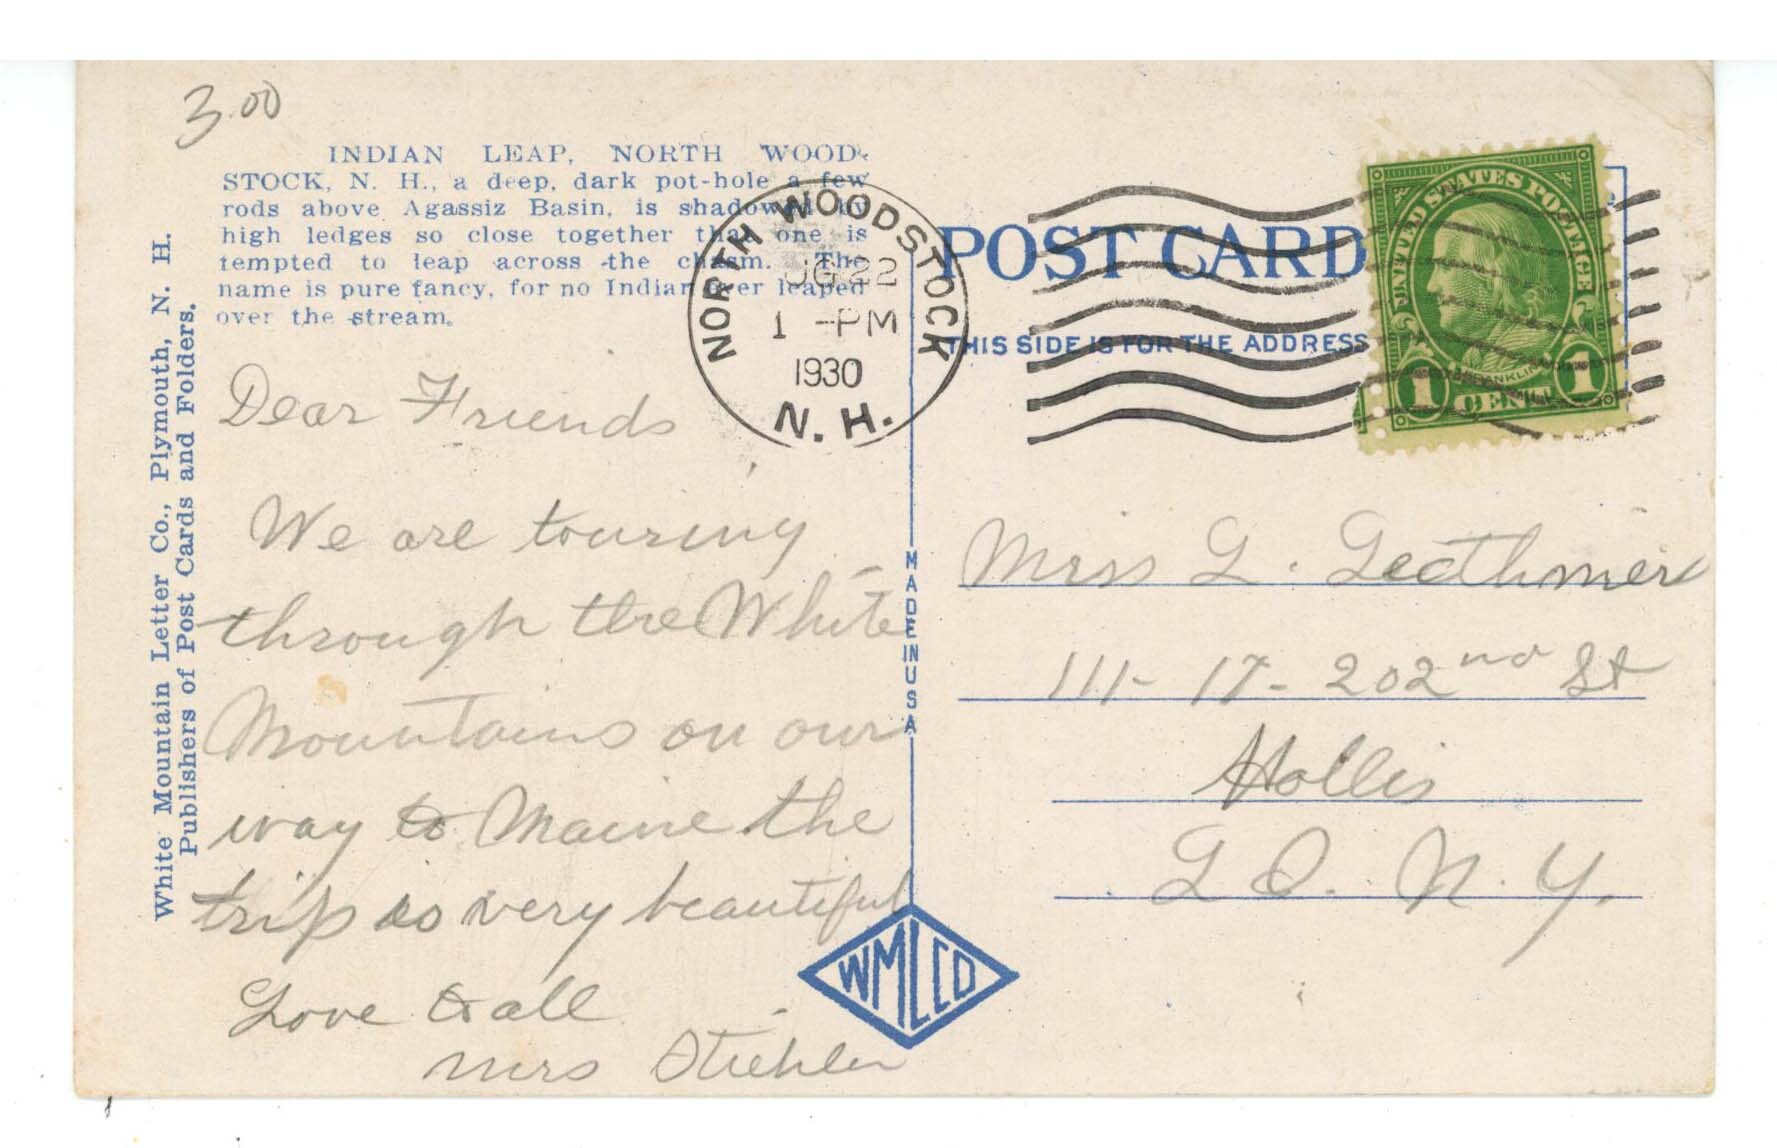 3.00
INDIAN LEAP, NORTH WOOD-
STOCK, N. H., a deep, dark pot-hole a few
rods above Agassiz Basin, is shadowed by
high ledges so close together that one is
tempted to leap across the chasm. The
name is pure fancy, for no Indian ever leaped
over the stream.
White Mountain Letter Co., Plymouth, N. H.
Publishers of Post Cards and Folders.
NORTH WOODSTOCK
UG 22
1 -PM
1930
N. H.
POST CARD
THIS SIDE IS FOR THE ADDRESS
UNITED STATES POSTAGE
FRANKLIN
1 CENT 1
Dear Friends
We are touring
through the White
Mountains on our
way to Maine the
trip is very beautiful
Love to all
Mrs Stiehler
MADE IN USA
WMLCO
Miss L.
111-17-202nd St
Hollis
L I. N. Y.